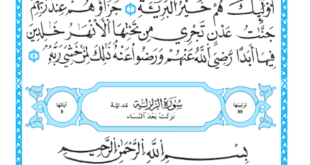 أُوْلَٰٓئِكَ هُمْ خَيْرُ ٱلْبَرِيَّةِ ٧ جَزَآؤُهُمْ عِندَ رَبِّهِمْ
جَنَّٰتُ عَدْنٍ تَجْرِي مِن تَحْتِهَا ٱلْأَنْهَٰرُ خَٰلِدِينَ
فِيهَآ أَبَدًا رَّضِيَ ٱللَّهُ عَنْهُمْ وَرَضُوا۟ عَنْهُ ذَٰلِكَ لِمَنْ خَشِيَ رَبَّهُۥ ٨
ترتيبها ٩٩ سُورَةُ الزلزلة مدنية آياتها ٨
نزلت بعد النساء
بِسْمِ ٱللَّهِ ٱلرَّحْمَٰنِ ٱلرَّحِيمِ